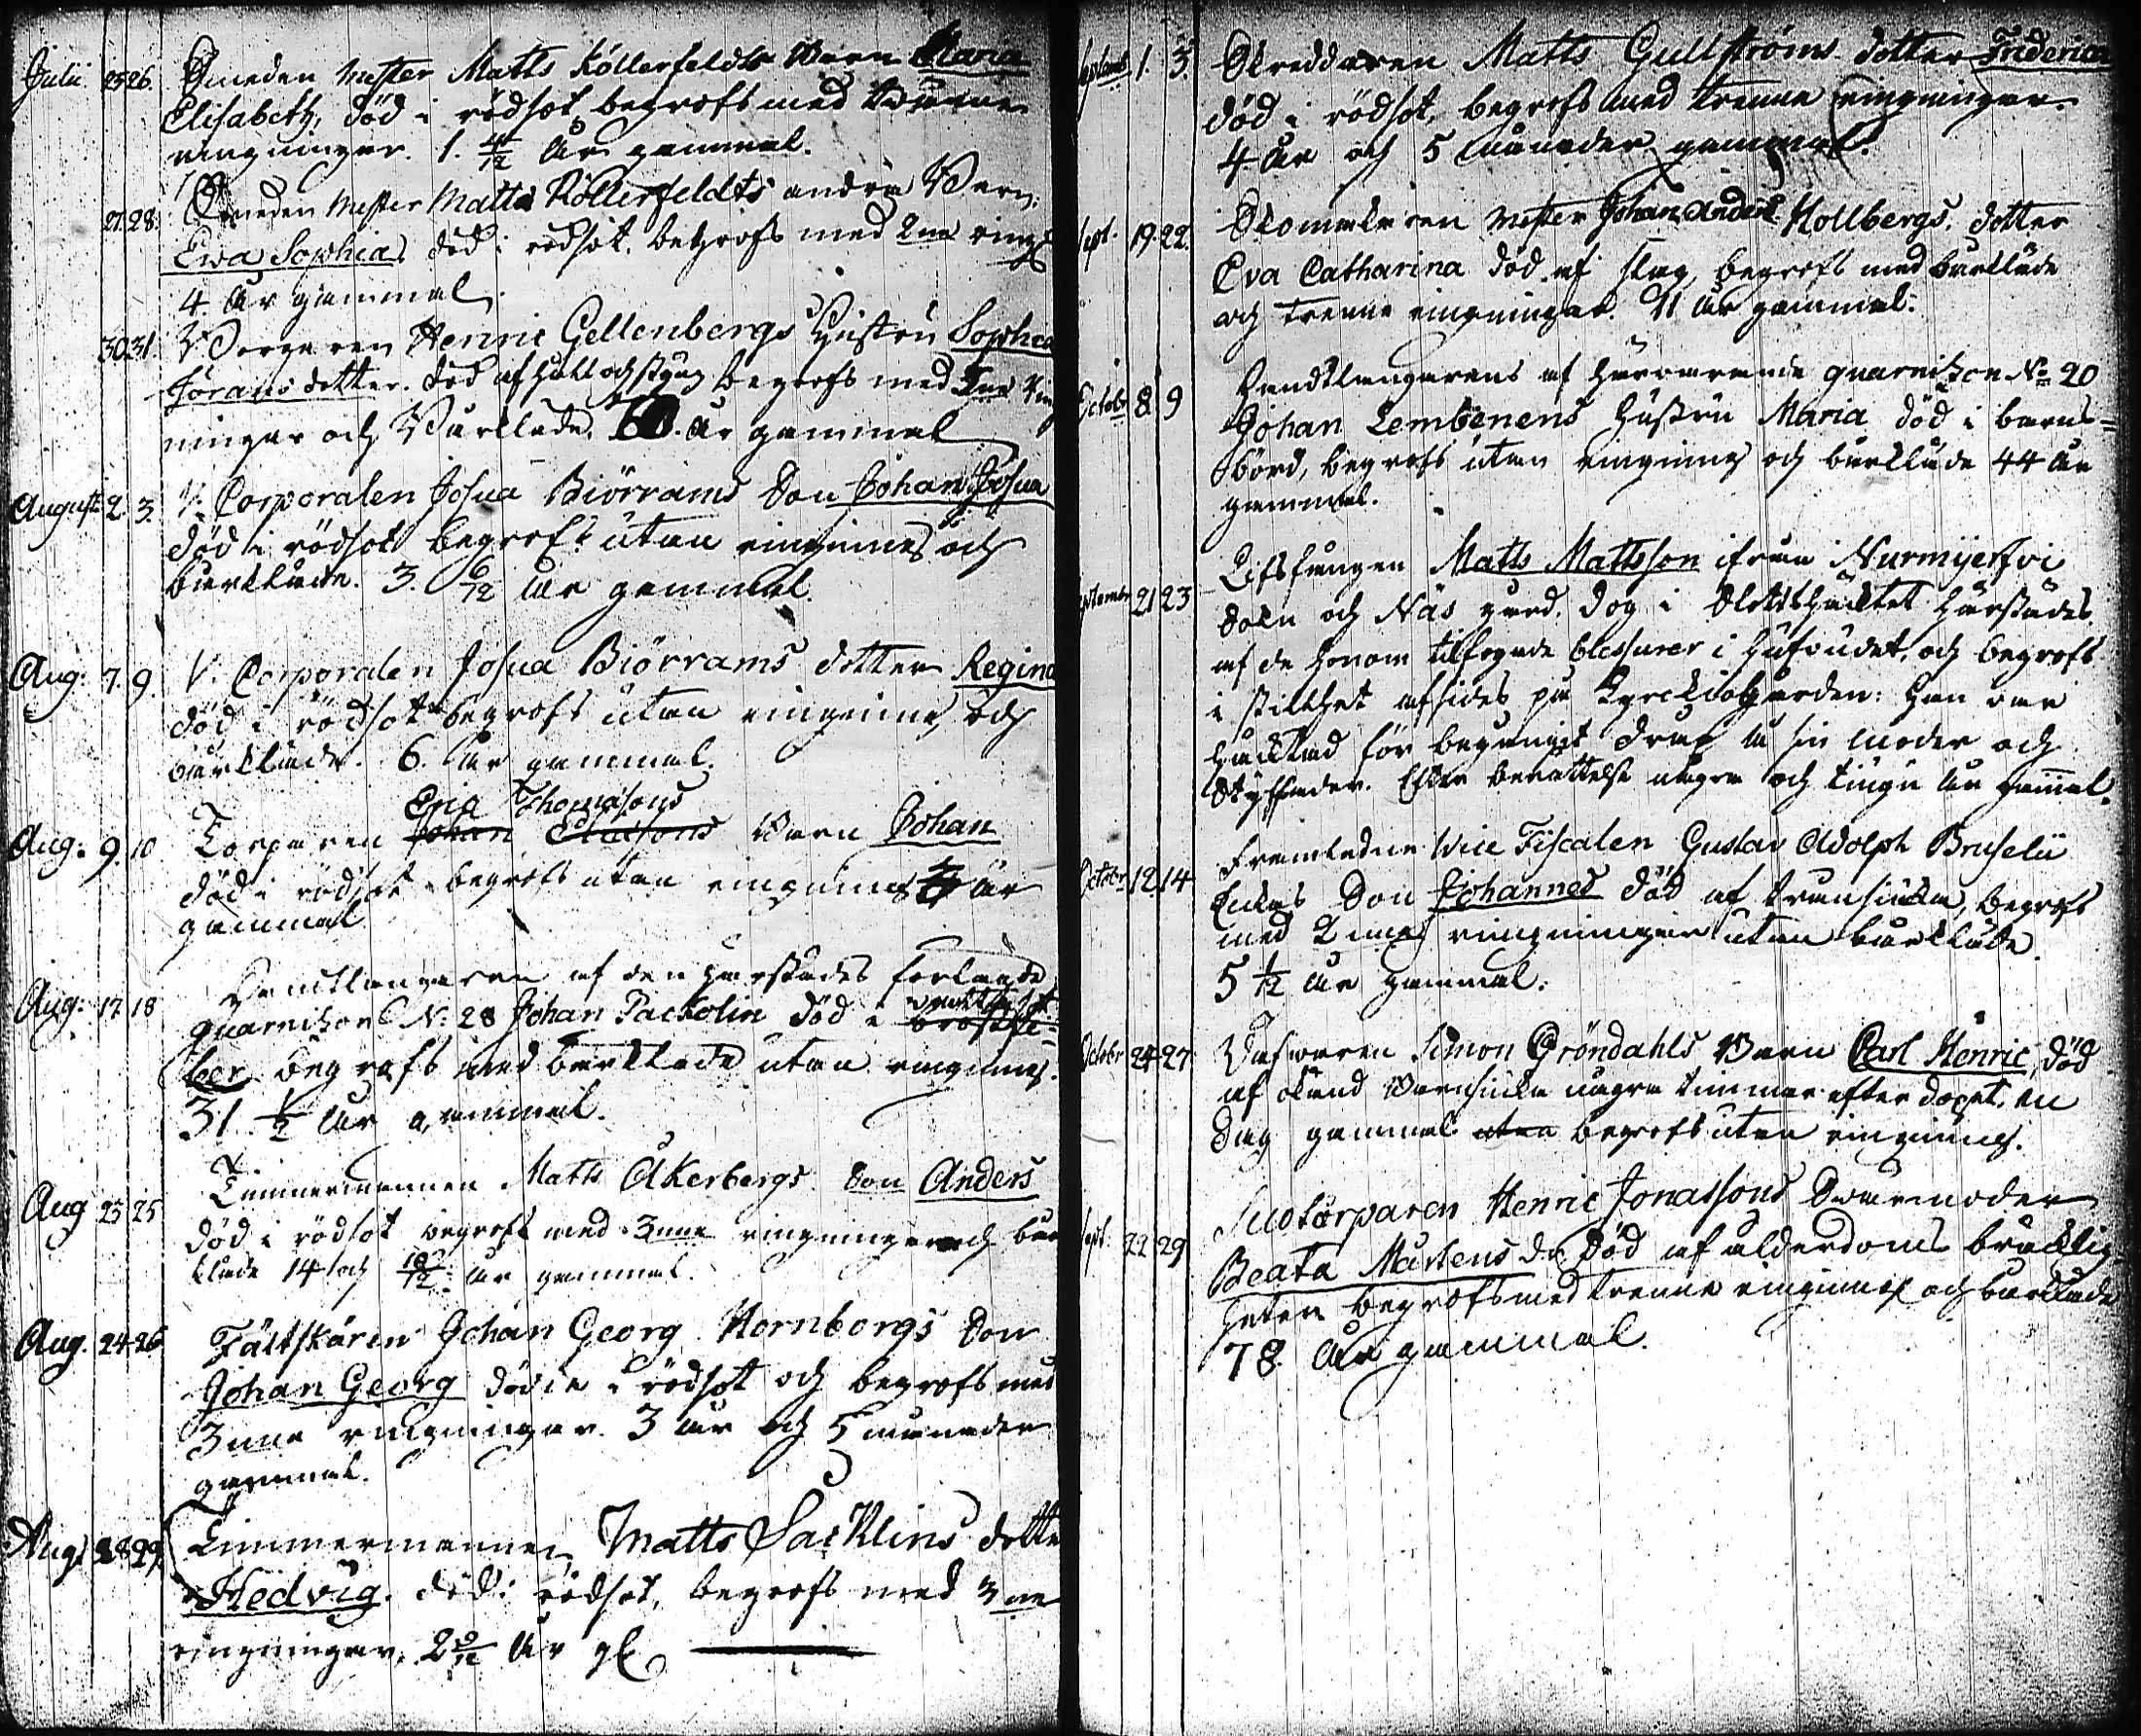 Julii 25 26. Smeden Mester Matts Köllerfeldts Barn Maria
Elisabeth, död i rödsot begrofs med
ringningar. 1. 11/12 År gammal.
27. 28. Smeden Mester Matts Köllerfeldts andra Barn
Ewa Sophia, död i rödsot. begrofs med 2ne ring
4. År gammal
30 31. Borgaren Henric Gellenbergs Hustru Sophia
Jörans dotter. död af håll och styng begrofs med
ningar och Bårkläde. 60. År gammal
August: 2. 3. V. Corporalen Josua Biörrams Son Johan Josua
död i rödsot begrofs utan ringning och
bårkläde. 3. 6/12 År gammal.
Aug: 7. 9. V. Corporalen Josua Biörrams dotter Regina
död i rödsot begrofs utan ringning och
bårkläde. 6. År gammal.
Eric Thomasons
Aug: 9. 10 Torparen Johan Clasons Barn Johan
död i rödsot begrofs utan ringning År
gammal
Aug: 17. 18 Handtlangaren af den härstädes förlagde
guarnizon No. 28 Johan Packolin död i
ber begrofs med bårkläde utan ringning.
31 1/2 År gammal.
Aug 23 25 Timmermannen Matts Åkerbergs Son Anders
död i rödsot begrofs med 3nne ringningar och bår
kläde 14 och 10/12 År gammal.
Aug. 24 26 Fältskären Johan Georg Hornborgs Son
Johan Georg döde i rödsot och begrofs med
3nne ringningar. 3 År och 5 månader
gammal.
Aug: 28 29. Timmermannen Matts Sacklins dotter
Hedvig. död i rödsot, begrofs med 3ne
ringningar, 2 9/12 År gl
Septemb 1. 3. Skreddaren Matts Gullströms dotter Friderica
död i rödsot, begrofs med trenne ringningar.
4 År och 5 månader gammal.
Sept. 19. 22. Skomakaren Mester Johan Anders Hollbergs dotter
Eva Catharina död af slag, begrofs med bårkläde
och trenne ringningar. 11 År gammal.
Octobr 8 9 Handtlangarens af härvarande guarnizon No 20
Johan Lembenens Hustru Maria död i barns=
börd, begrofs utan ringning och bårkläde 44 År
gammal.
Septembr 21 23 Lifsfången Matts Mattsson ifrån Nurmijerfvi
Soln och Näs gård. dog i Slottshäcktet härstädes
af de honom tilfogade blessurer i hufvudet, och begrofs
i stillhet afsides på Kyrckiogården: Han var
häcktad för begånget dråp å sin moder och
Styffader. Efter berättelse några och tiugu År gammal.
Octobr 12 14 Framledne Vice Fiscalen Gustav Adolph Bruselii
Enkas Son Johannes död af transiuka, begrofs
med 2nne ringningar utan bårkläde.
5 1/12 År gammal.
Octobr 24 27 Väfwaren Simon Gröndahls Barn Carl Henric, död
af okänd Barnsiuka några timmar efter dopet, en
Dag gammal utan begrofs utan ringning.
Sept. 22 29 Sicotorparen Henric Jonassons Svärmoder
Beata Mårtens dr. död af ålderdoms bräcklig=
heten begrofs med trenne ringning och bårkläde
78 År gammal.